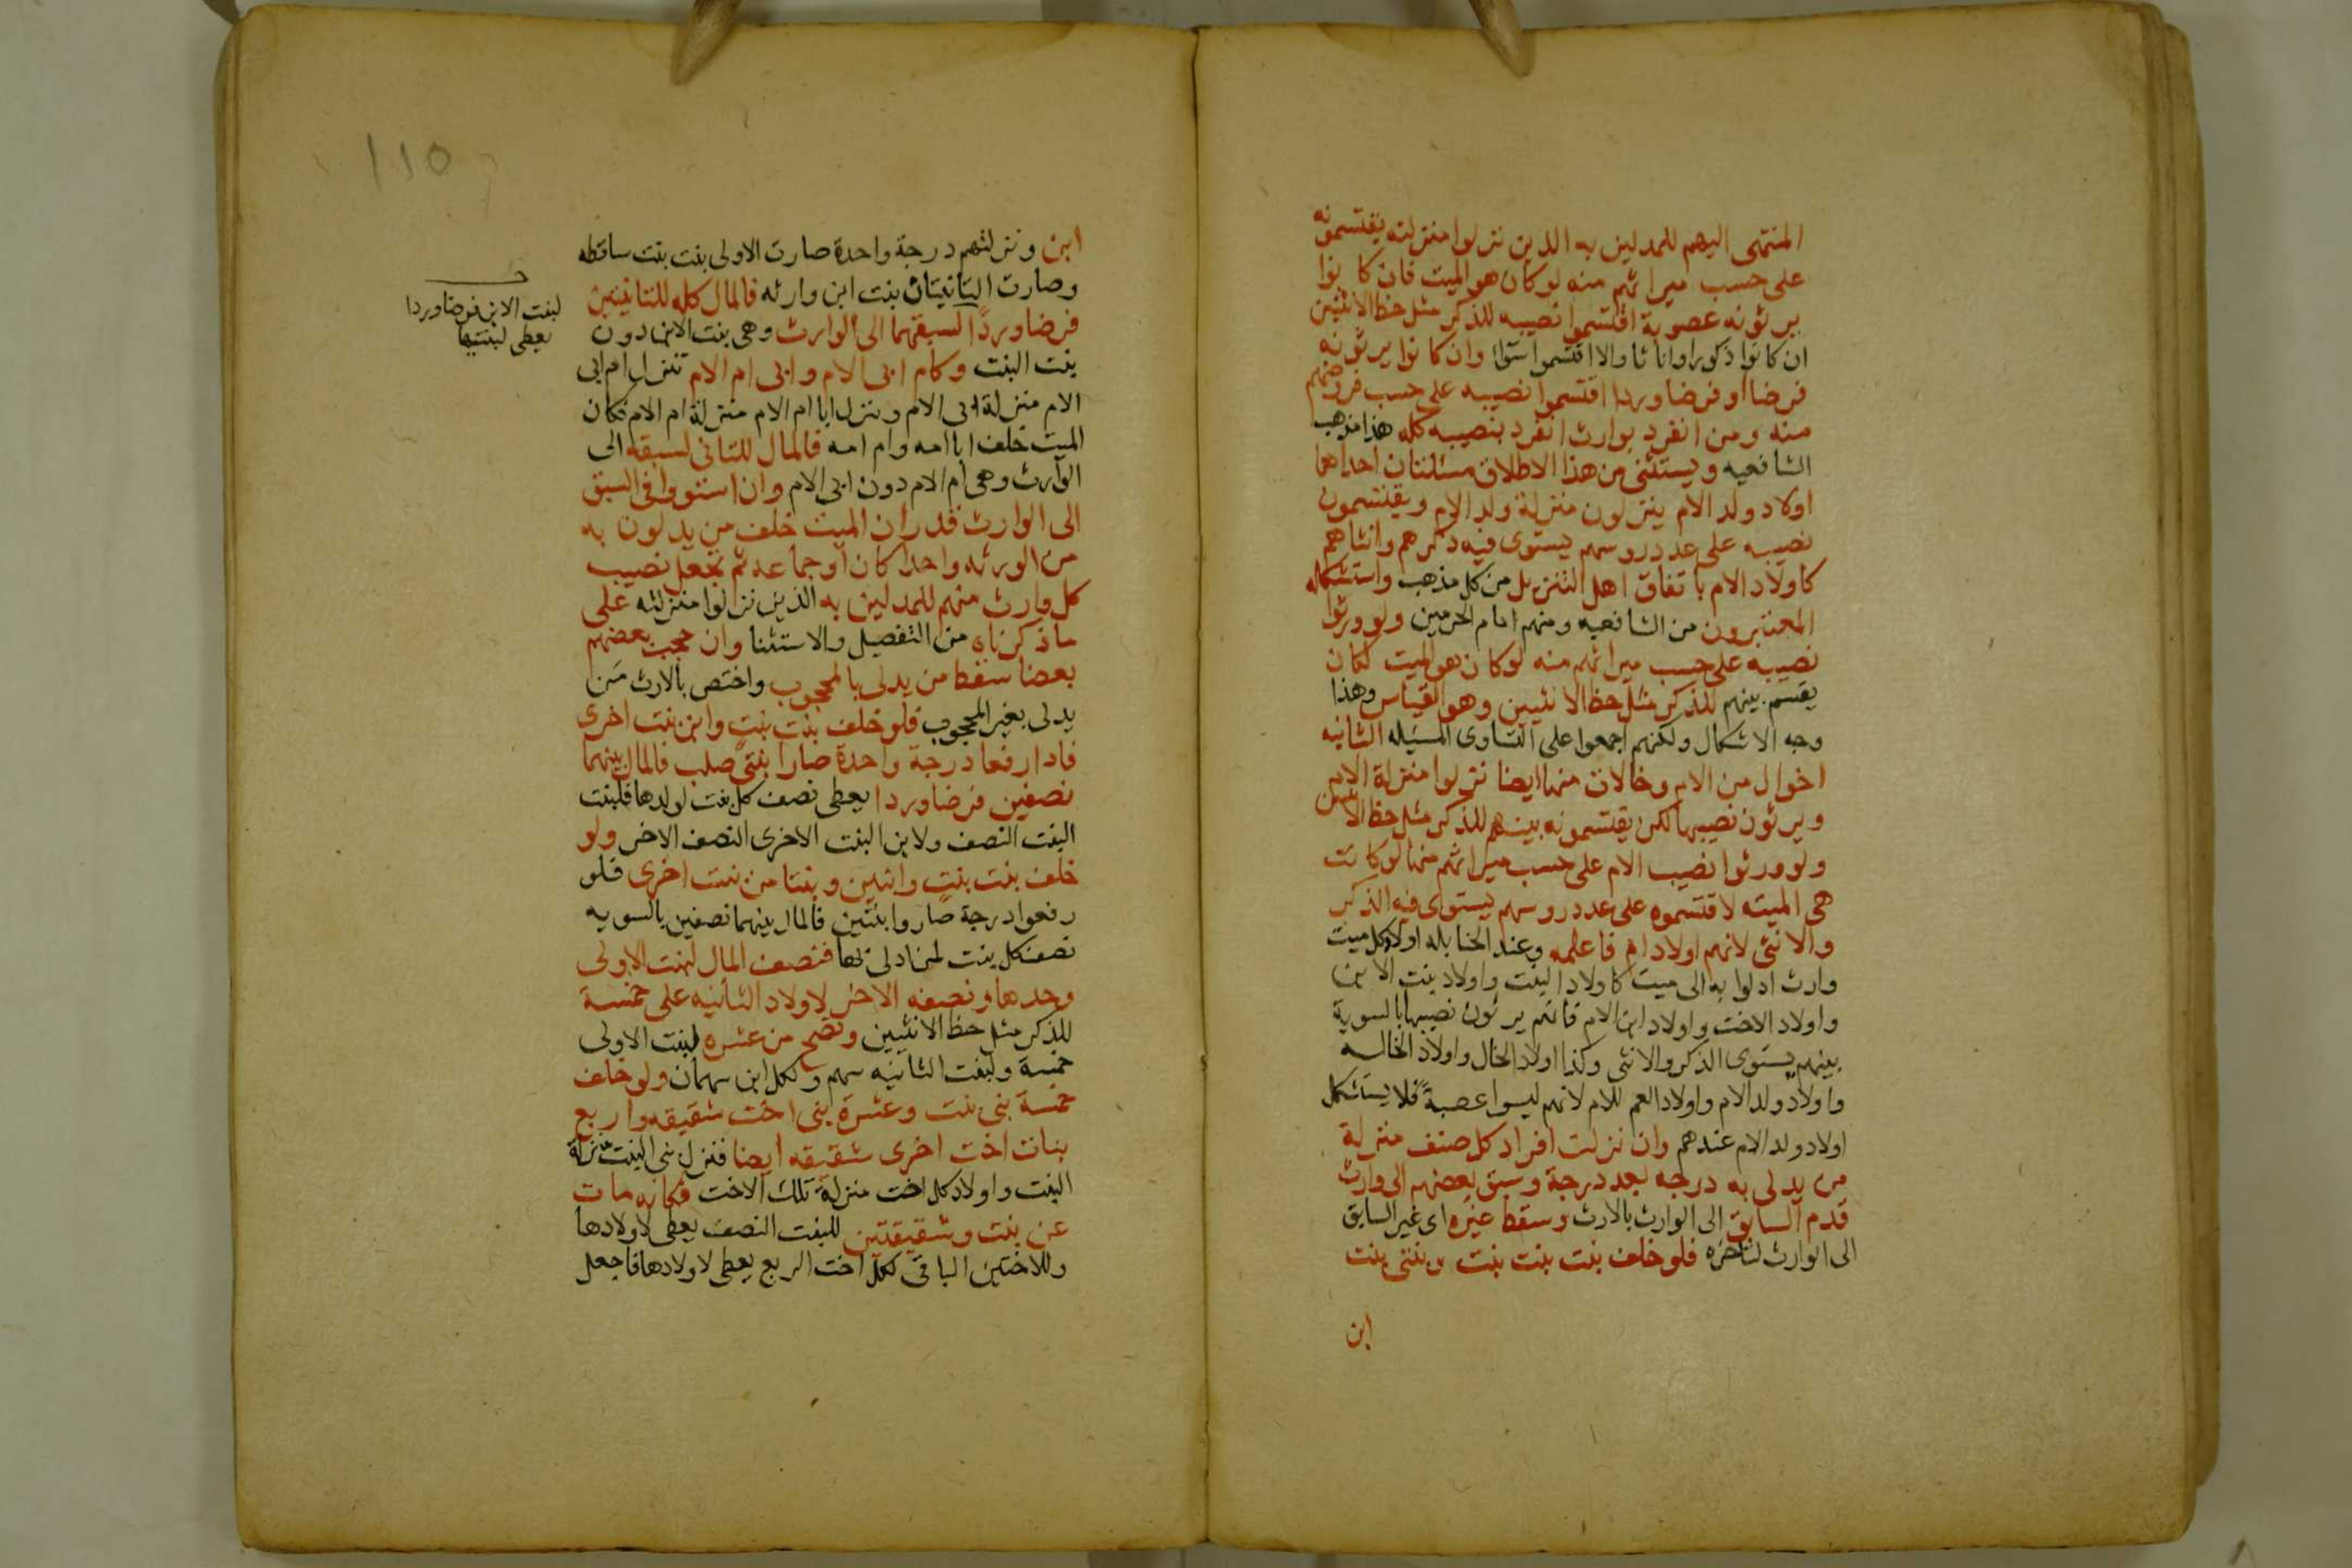 المنتمى اليهم للمدلين به الذين نزلوا منزلته يقتسمونه
على حسب ميراثهم منه لو كان هو الميت فان كانوا
يرثونه عصوبة اقتسموا نصيبه للذكر مثل حظ الانثيين
ان كانوا ذكورا واناثا والا اقتسموا سوآا وان كانوا يرثونه
فرضا او فرضا وردا اقتسموا نصيبه على حسب فروضهم
منه ومن انفرد بوارث انفرد بنصيبه كله هذا مذهب
الشافعيه ويستثنى من هذا الاطلاق مسئلتان احداهما
اولاد ولد الام ينزلون منزلة ولد الام ويقتسمون
نصيبه على عدد روسهم يستوى فيه ذكرهم وانثاهم
كاولاد الام باتفاق اهل التنزيل من كل مذهب واستشكله
المعتبرون من الشافعيه ومنهم امام الحرمين ولو ورثوا
نصيبه على حسب ميراثهم منه لو كان هو الميت لكان
يقسم بينهم للذكر مثل حظ الانثيين وهو القياس وهذا
وجه الاشكال ولكنهم اجمعوا على التساوى المسئله الثانيه
اخوال من الام وخالات منها ايضا نزلوا منزلة الام
ويرثون نصيبها لكن يقتسمونه بينهم للذكر مثل حظ الانثيين
ولو ورثوا نصيب الام على حسب ميراثهم منها لو كانت
هى الميته لاقتسموه على عدد روسهم يستوى فيه الذكر
والانثى لانهم اولاد ام فاعلمه وعند الحنابله اولاد كل ميت
وارث ادلوا به الى ميت كاولاد البنت واولاد بنت الابن
واولاد الاخت واولاد ابن الام فانهم يرثون نصيبها بالسوية
بينهم يستوى الذكر والانثى وكذا اولاد الخال واولاد الخاله
واولاد ولد الام واولاد العم للام لانهم ليسوا عصبة فلا يستشكل
اولاد ولد الام عندهم وان نزلت افراد كل صنف منزلة
من يدلى به درجه بعد درجة وسبق بعضهم الى وارث
قدم السابق الى الوارث بالارث وسقط غيره اى غير السابق
الى الوارث لتأخره فلو خلف بنت بنت بنت وبنتى بنت
ابن
110
ابن ونزلتهم درجة واحدة صارت الاولى بنت بنت ساقطه
وصارت الثانيتان بنت ابن وارثه فالمال كله للثانيتين
فرضا وردا لسبقهما الى الوارث وهى بنت الابن دون
بنت البنت وكام ابى الام وابى ام الام تنزل ام ابى
الام منزلة ابى الام وينزل ابا ام الام منزلة ام الام فكان
الميت خلف ابا امه وام امه فالمال للثانى لسبقه الى
الوارث وهى ام الام دون ابى الام وان استووا فى السبق
الى الوارث قدر ان الميت خلف من يدلون به
من الورثه واحدا كان او جماعه ثم يجعل نصيب
كل وارث منهم للمدلين به الذين نزلوا منزلته على
ما ذكرناه من التفصيل والاستثنا وان حجب بعضهم
بعضا سقط من يدلى بالمحجوب واختص بالارث من
يدلى بغير المحجوب فلو خلف بنت بنت وابن بنت اخرى
فاذا رفعا درجة واحدة صارا بنتى صلب فالمال بينهما
نصفين فرضا وردا يعطى نصف كل بنت لولدها فلبنت
البنت النصف ولابن البنت الاخرى النصف الاخر ولو
خلف بنت بنت وابنين وبنتا من بنت اخرى فلو
رفعوا درجة صاروا بنتين فالمال بينهما نصفين بالسويه
نصف كل بنت لمن ادلى بها فنصف المال لبنت الاولى
وحدها ونصفه الاخر لاولاد الثانيه على خمسة
للذكر مثل حظ الانثيين وتصح من عشره لبنت الاولى
خمسة ولبنت الثانيه سهم ولكل ابن سهمان ولو خلف
خمسة بنى بنت وعشرة بنى اخت شقيقه واربع
بنات اخت اخرى شقيقه ايضا فنزل بنى البنت منزلة
البنت واولاد كل اخت منزلة تلك الاخت فكانه مات
عن بنت وشقيقتين للبنت النصف يعطى لاولادها
وللاختين الباقى لكل اخت الربع يعطى لاولادها فاجعل
لبنت الابن فرضا وردا
يعطى لبنتيها